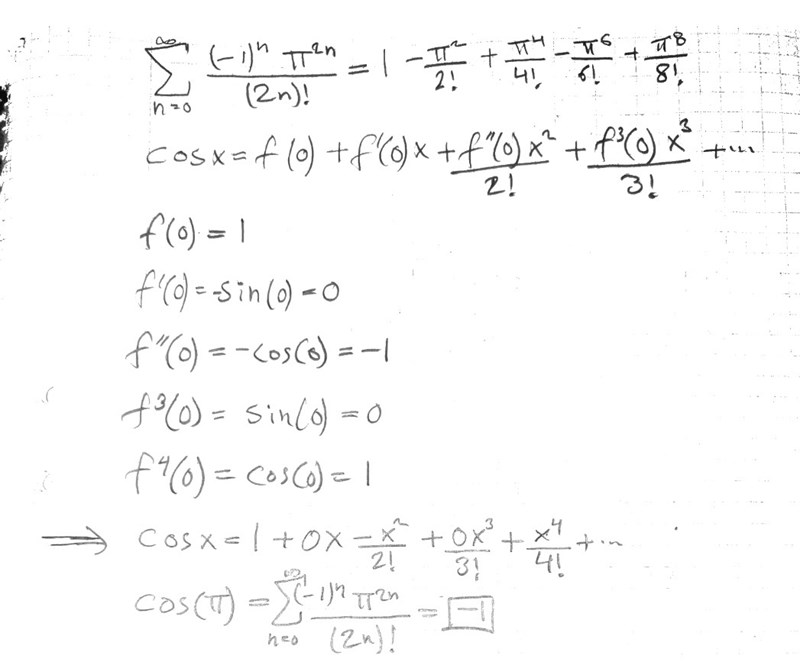 ∞∑n=0 (-1)ⁿ π²ⁿ/(2n)! = 1 - π²/2! + π⁴/4! - π⁶/6! + π⁸/8!
cos x = f(0) + f'(0)x + f''(0)x²/2! + f³(0)x³/3! + ...
f(0) = 1
f'(0) = -sin(0) = 0
f''(0) = -cos(0) = -1
f³(0) = sin(0) = 0
f⁴(0) = cos(0) = 1
⟹ cos x = 1 + 0x - x²/2! + 0x³/3! + x⁴/4! + ...
cos(π) = ∞∑n=0 (-1)ⁿ π²ⁿ/(2n)! = -1